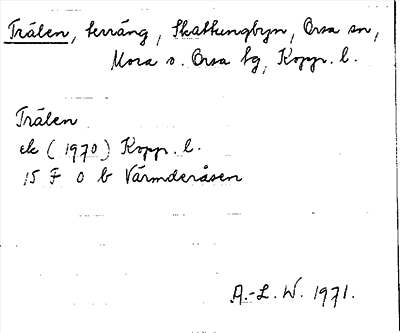 Trålen, terräng, Skattungbyn, Orsa sn,
Mora o. Orsa tg, Kopp. l.
Trålen
ek (1970) Kopp. l.
15 F 0 b Värmderåsen
A.-L. W. 1971.